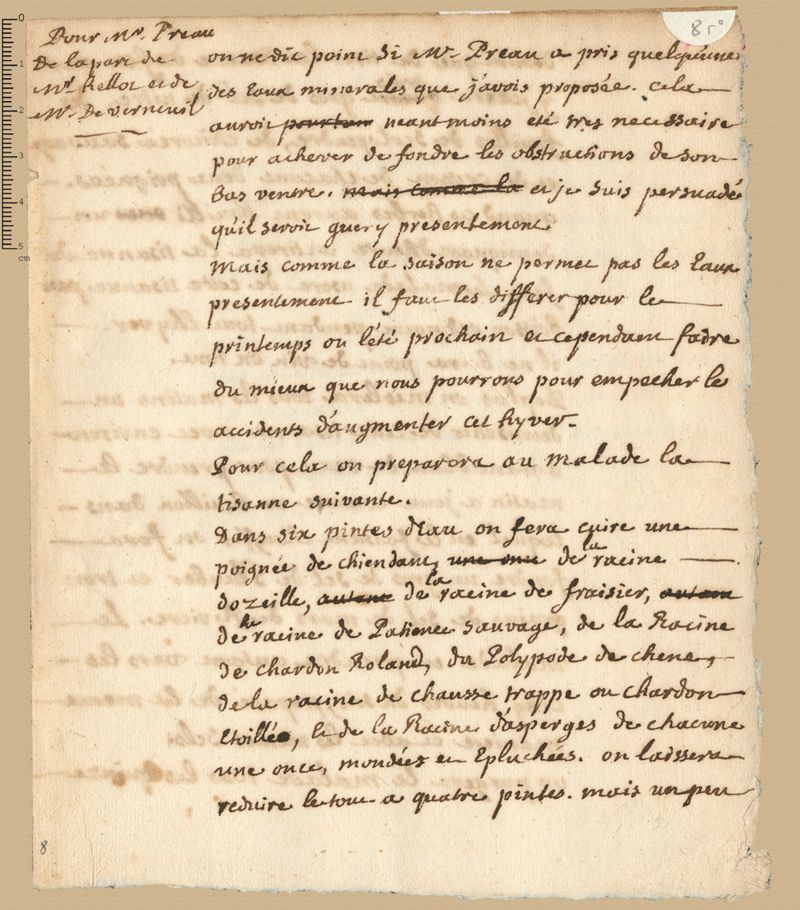 8 r°
Pour Mr. Preau
De la part de
Mr hellot et de
Mr. De verneuil
on ne dit point si Mr. Preau a pris quelqu'une
des Eaux minerales que j'avois proposée. cela
auroit pourtant neantmoins eté tres necessaire
pour achever de fondre les obstructions de son
Bas ventre. mais comme la et je suis persuadé
qu'il seroit guery presentement
Mais comme la saison ne permet pas les Eaux
presentement il faut les differer pour le
printemps ou l'été prochain et cependant faire
du mieux que nous pourrons pour empecher les
accidents d'augmenter cet hyver.
Pour cela on preparera au malade la
tisanne suivante.
Dans six pintes d'Eau on fera cuire une
poignée de chiendant, une once de la racine
d'ozeille, autant de la racine de fraisier, autant
de la racine de Patience sauvage, de la Racine
de chardon Roland, du Polypode de chene,
de la racine de chausse trappe ou chardon
Etoillée, et de la Racine d'asperges de chacune
une once, mondées et Epluchées. on laissera
reduire le tout a quatre pintes. mais un peu
8